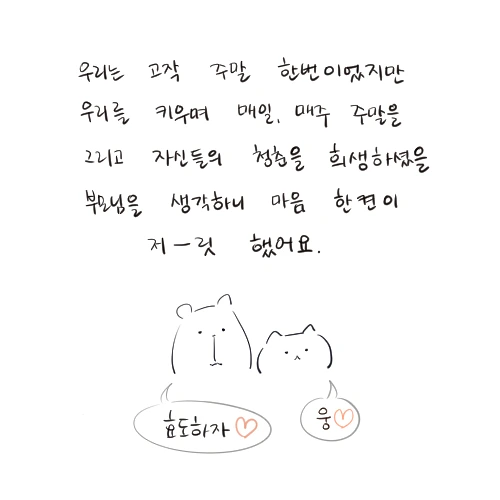 우리는 고작 주말 한번이었지만
우리를 키우며 매일, 매주 주말을
그리고 자신들의 청춘을 희생하셨을
부모님을 생각하니 마음 한켠이
저-릿 했어요.
효도하자♡
웅♡